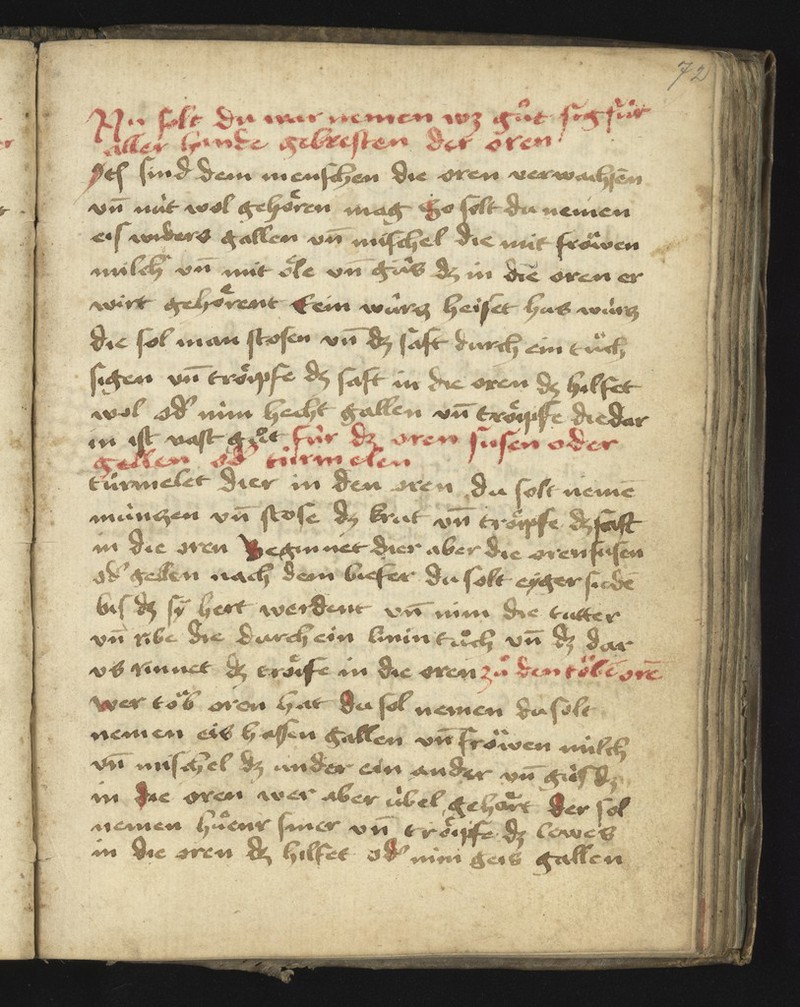 72
Nu solt du war nemen wz gůt sig fúr
aller hande gebresten der oren
sind dem menschen die oren verwachsen
vn̄ nút wol gehoͤren mag So solt du nemen
eis widers gallen vn̄ mischel die mit froͤwen
milch vn̄ mit oͤle vn̄ gús dz in die oren er
wirt gehoͤrent Ein wúrz heiset hus wúrz
die sol man stosen vn̄ dz saft durch ein tůch
sigen vn̄ troͤipfe dz saft in die oren dz hilfet
wol od' nim hecht gallen vn̄ troͤipfe die dar
in ist vast gůt fúr dz oren susen oder
gellen od' túrmelen
túrmelet dier in den oren du solt nemē
múnzen vn̄ stose dz krut vn̄ troͤipfe dz saft
in die oren Beginnet dier aber die oren susen
od' gellen nach dem biefer du solt eyger siedē
bis dz sÿ hert werdent vn̄ nim die tutter
vn̄ ribe die durch ein linin tůch vn̄ dz dar
vs rinnet dz troͤife in die oren zů den toͤbē orē
wer toͤb oren hat du sol nemen du solt
nemen eis hassen gallen vn̄ froͤwen milch
vn̄ mischel dz under ein ander vn̄ gús dz
in die oren wer aber úbel gehoͤrt der sol
nemen huͤenr smer vn̄ troͤipfe dz lewes
in die oren dz hilfet od' nim geis gallen